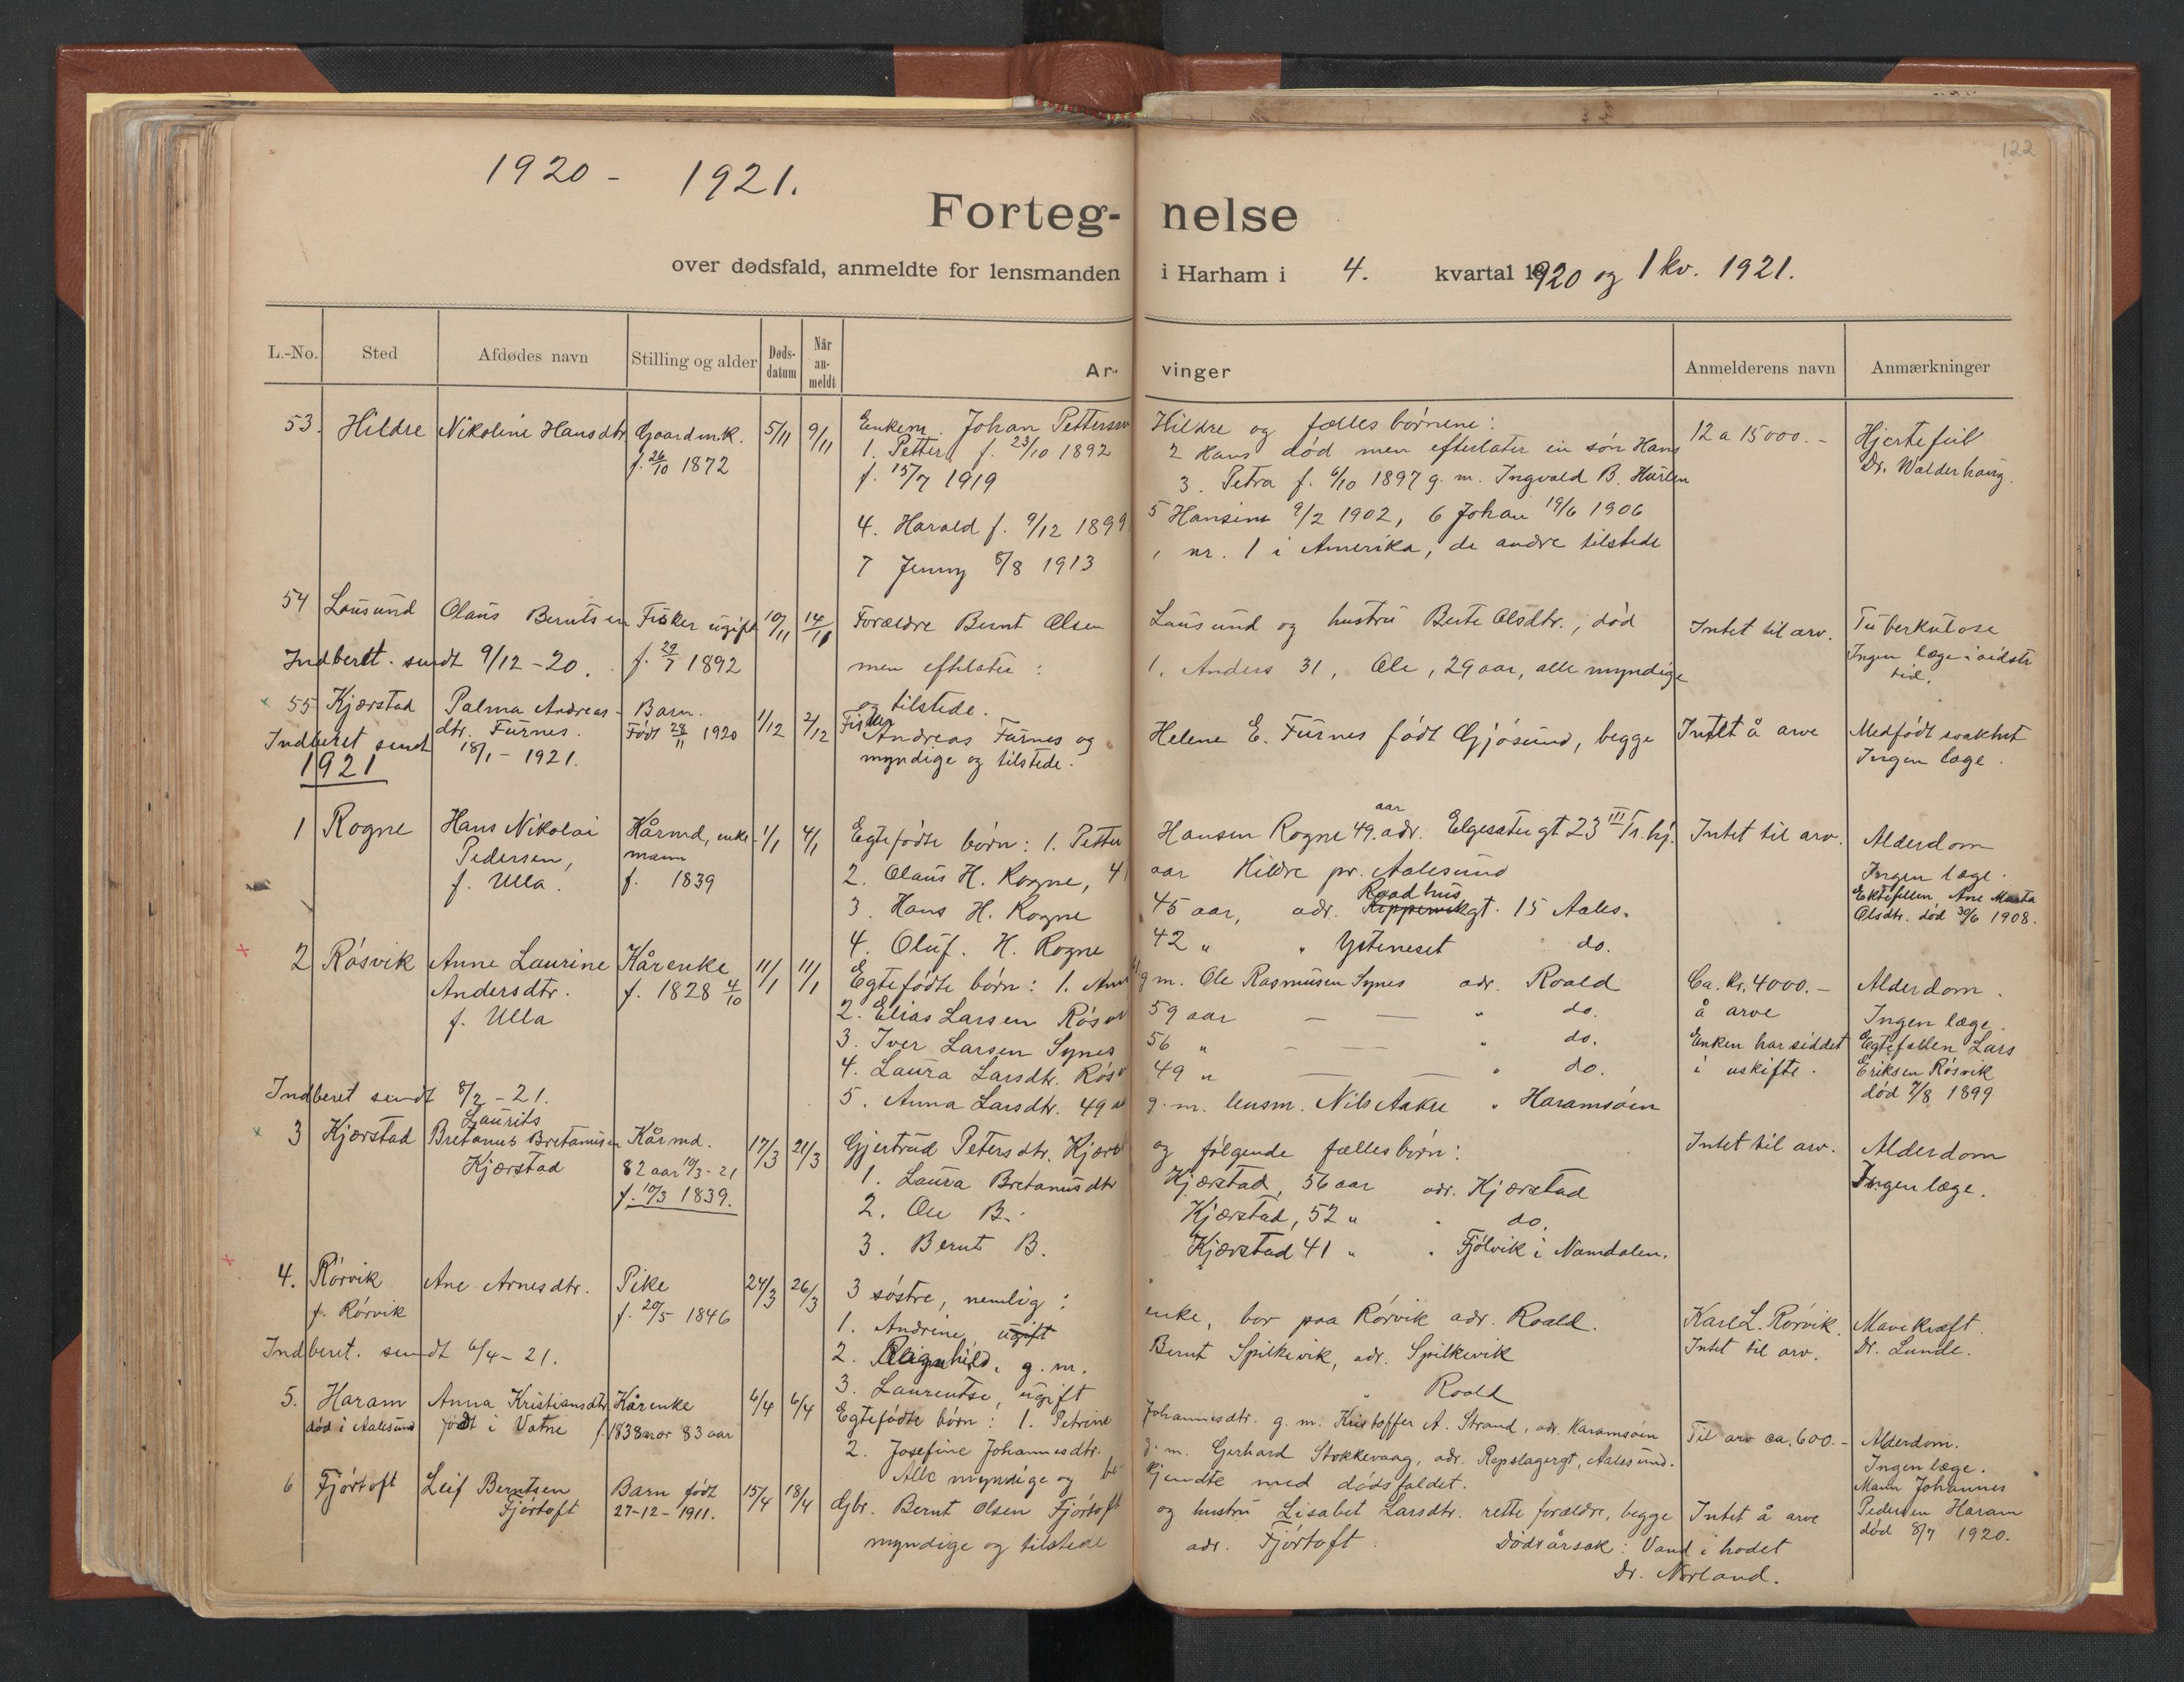 122
1920 - 1921.
Forteg- nelse
over dødsfald, anmeldte for lensmanden i Harham i 4. kvartal 1920 og 1 kv. 1921.
L.-No. Sted Afdødes navn Stilling og alder Døds-datum Når an-meldt Ar- vinger Anmelderens navn Anmærkninger
53. Hildre Nikoline Hansdtr Gaardmk. 5/11 9/11 Enkem. Johan Petterssen Hildre og fælles børnene: 12 a 15000.- Hjertefeil
f. 26/10 1872 1. Petter f. 23/10 1892 2 Hans død men efterlater en søn Hans Dr. Walderhaug.
f. 15/7 1919 3. Petra f. 6/10 1897 g. m. Ingvald B. Hurlen
4. Harald f. 9/12 1899 5 Hansine 9/2 1902, 6 Johan 19/6 1906
7 Jenny 8/8 1913 , nr. 1 i Amerika, de andre tilstede
54 Lausund Olaus Berntsen Fisker ugift 10/11 14/11 Forældre Bernt Olsen Lausund og hustru Berte Olsdtr., død Intet til arv. Tuberkulose
Indberet. sendt 9/12-20. f. 29/7 1892 men efterlater: 1. Anders 31, Ole, 29 aar, alle myndige Ingen læge i sidste
og tilstede. tid.
55 Kjærstad Palma Andreas- Barn. 1/12 2/12 Fisker Andreas Furnes og Helene E. Furnes født Gjøsund, begge Intet å arve Medfødt svakhet
Indberet sendt dtr. Furnes. Født 28/11 1920 myndige og tilstede. Ingen læge.
18/1 - 1921.
1921
1 Rogne Hans Nikolai Kårmd, enke- 1/1 4/1 Egtefødte børn: 1. Petter Hansen Rogne 49 aar adr. Elgesætergt 23 III Tr.hj. Intet til arv. Alderdom
Pedersen, mann 2. Olaus H. Rogne, 4 aar Hildre pr. Aalesund Ingen læge.
f. Ulla. f. 1839 3. Hans H. Rogne 45 aar, adr. Raadhusgt. 15 Aales. Ektefellen, Ane Marta
4. Oluf. H. Rogne 42 " " Ysteneset do. Olsdtr. død 30/6 1908.
2 Røsvik Anne Laurine Kårenke 11/1 11/1 Egtefødte børn: 1. g m. Ole Rasmusen Synes adr. Roald Ca. Kr. 4000.- Alderdom.
Andersdtr. f. 1828 4/10 2. Elias Larsen Røsvik 59 aar — — " do. å arve Ingen læge.
f. Ulla 3. Iver Larsen Synes 56 " — — " do. Enken har siddet Egtefellen Lars
4. Laura Larsdtr. Røsv 49 " — — " do. i uskifte. Eriksen Røsvik
Indberet sendt 8/2 - 21. 5. Anna Larsdtr. 49 aar g. m. lensm. Nils Aakre " Haramsøen død 7/8 1899
3 Kjærstad Laurits Bretanus Bretanusen Kårmd. 17/3 21/3 Gjertrud Petersdtr. Kjærst og følgende fællesbørn: Intet til arv. Alderdom
Kjærstad 82 aar 10/3-21 1. Laura Bretanusdtr Kjærstad, 56 aar adr. Kjærstad Ingen læge.
f. 10/3 1839. 2. Ole B. Kjærstad, 52 " " do.
3. Bernt B. Kjærstad 41 " " Fjølvik i Namdalen.
4. Rørvik Ane Arnesdtr. Pike 24/3 26/3 3 søstre, nemlig:
f. Rørvik f. 20/5 1846 1. Andrine, ugift enke, bor paa Rørvik adr. Roald. Karl L. Rørvik. Mavekræft.
Indberet. sendt 6/4-21. 2. Ragnhild, g. m. Bernt Spilkevik, adr. Spilkevik Intet til arv. Dr. Lunde.
3. Laurentse, ugift " Roald
5. Haram Anna Kristiansdtr Kårenke 6/4 6/4 Egtefødte børn: 1. Petrine Johannesdtr. g. m. Kristoffer A. Strand, adr. Haramsøen Til arv ca. 600.- Alderdom.
død i Aalesund født i Vatne f. 1838 nær 83 aar 2. Josefine Johannesdtr. g. m. Gerhard Stokkevaag, adr. Repslagergt, Aalesund. Ingen læge.
Alle myndige og be- kjendte med dødsfaldet. Mann Johannes
6 Fjørtoft Leif Berntsen Barn født 15/4 18/4 Gbr. Bernt Olsen Fjørtoft og hustru Lisabet Larsdtr. rette forældre, begge Intet å arve Pedersen Haram
Fjørtoft 27-12-1911. myndige og tilstede adr. Fjørtoft. Dødsårsak: Vand i hodet død 8/7 1920.
Dr. Nørland.